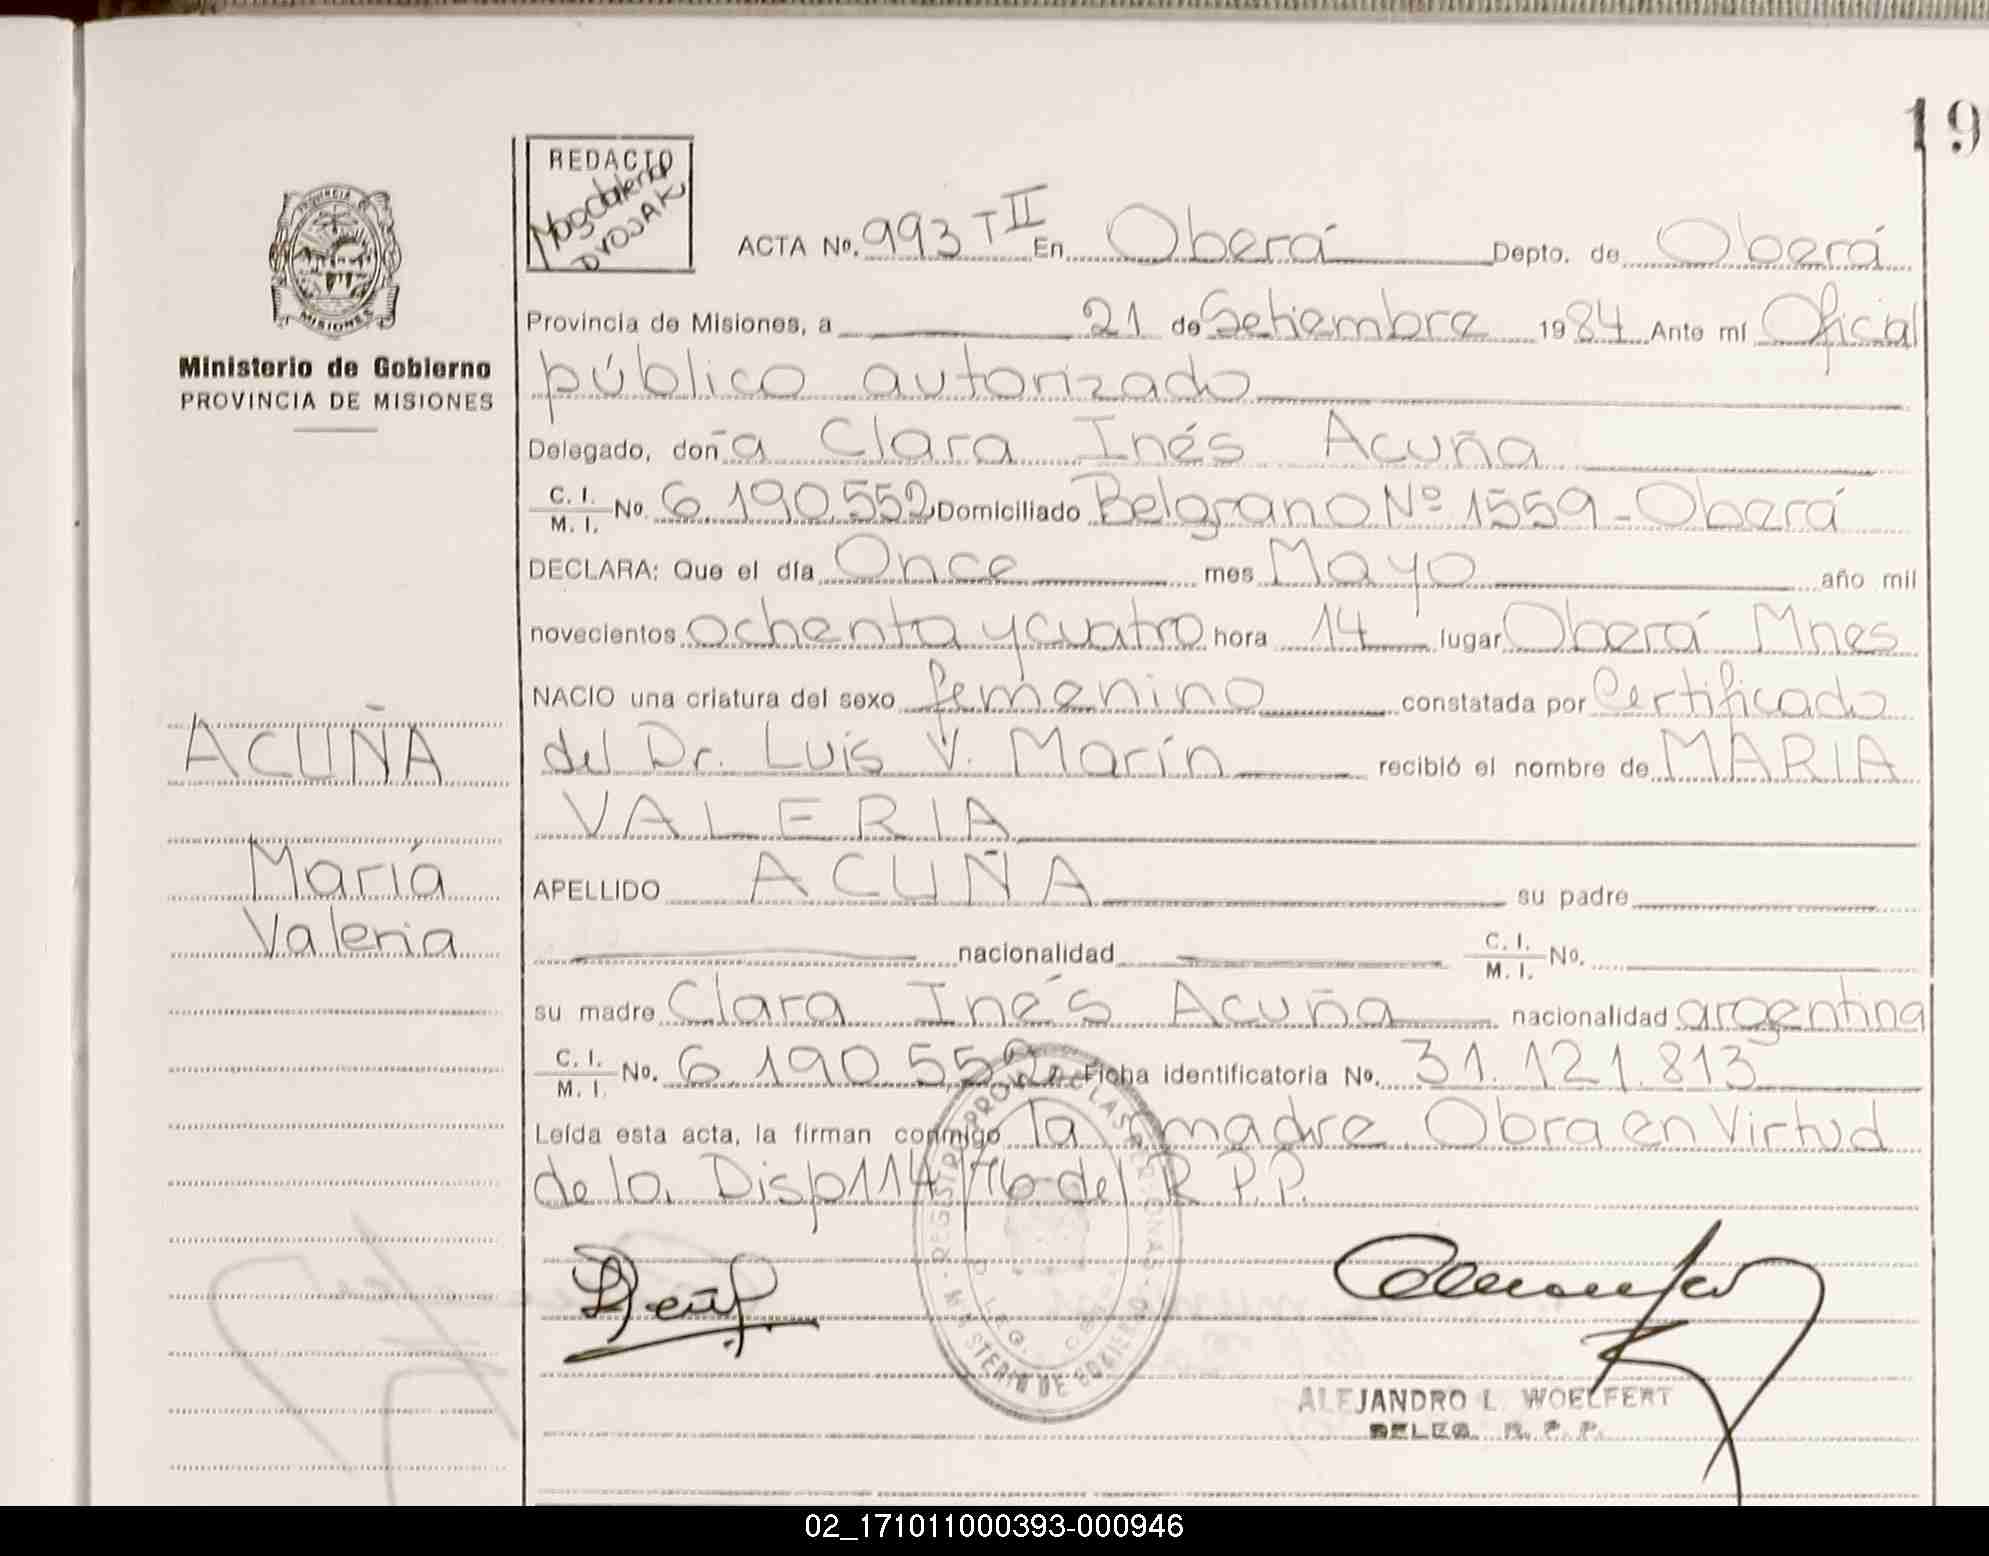 19
REDACTO
Magdalena
DVOJAK
PROVINCIA
MISIONES
Ministerio de Gobierno
PROVINCIA DE MISIONES
ACTA No. 993 T II En Oberá Depto. de Oberá
Provincia de Misiones, a 21 de Setiembre 1984 Ante mí Oficial
público autorizado
Delegado, doña Clara Inés Acuña
C. I. / M. I. No. 6.190.552 Domiciliado Belgrano Nº 1559 - Oberá
DECLARA: Que el día Once mes Mayo año mil
novecientos ochenta y cuatro hora 14 lugar Oberá Mnes
NACIO una criatura del sexo femenino constatada por Certificado
del Dr. Luis V. Marín recibió el nombre de MARIA
VALERIA
APELLIDO ACUÑA su padre
nacionalidad C. I. / M. I. No.
su madre Clara Inés Acuña nacionalidad argentina
C. I. / M. I. No. 6.190.552 Ficha identificatoria No. 31.121.813
Leída esta acta, la firman conmigo la madre. Obra en Virtud
de la Disp 114/76 del R.P.P.
ACUÑA
María
Valeria
MINISTERIO DE GOBIERNO
ALEJANDRO L. WOELFERT
DELEG. R. P. P.
02_171011000393-000946